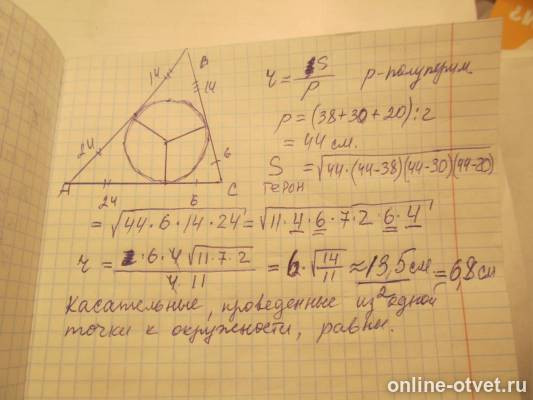 B
14
14
24
6
A
24
6
C
r = S/p p-полупери.
p = (38+30+20):2
= 44 см.
S = √44·(44-38)(44-30)(44-20)
герон
= √44·6·14·24 = √11·4·6·7·2·6·4
r = 2·6·4√11·7·2 / 4·11 = 6·√14/11 ≈ 13,5 см = 6,8 см
2
Касательные, проведенные из одной
точки к окружности, равны.
online-otvet.ru